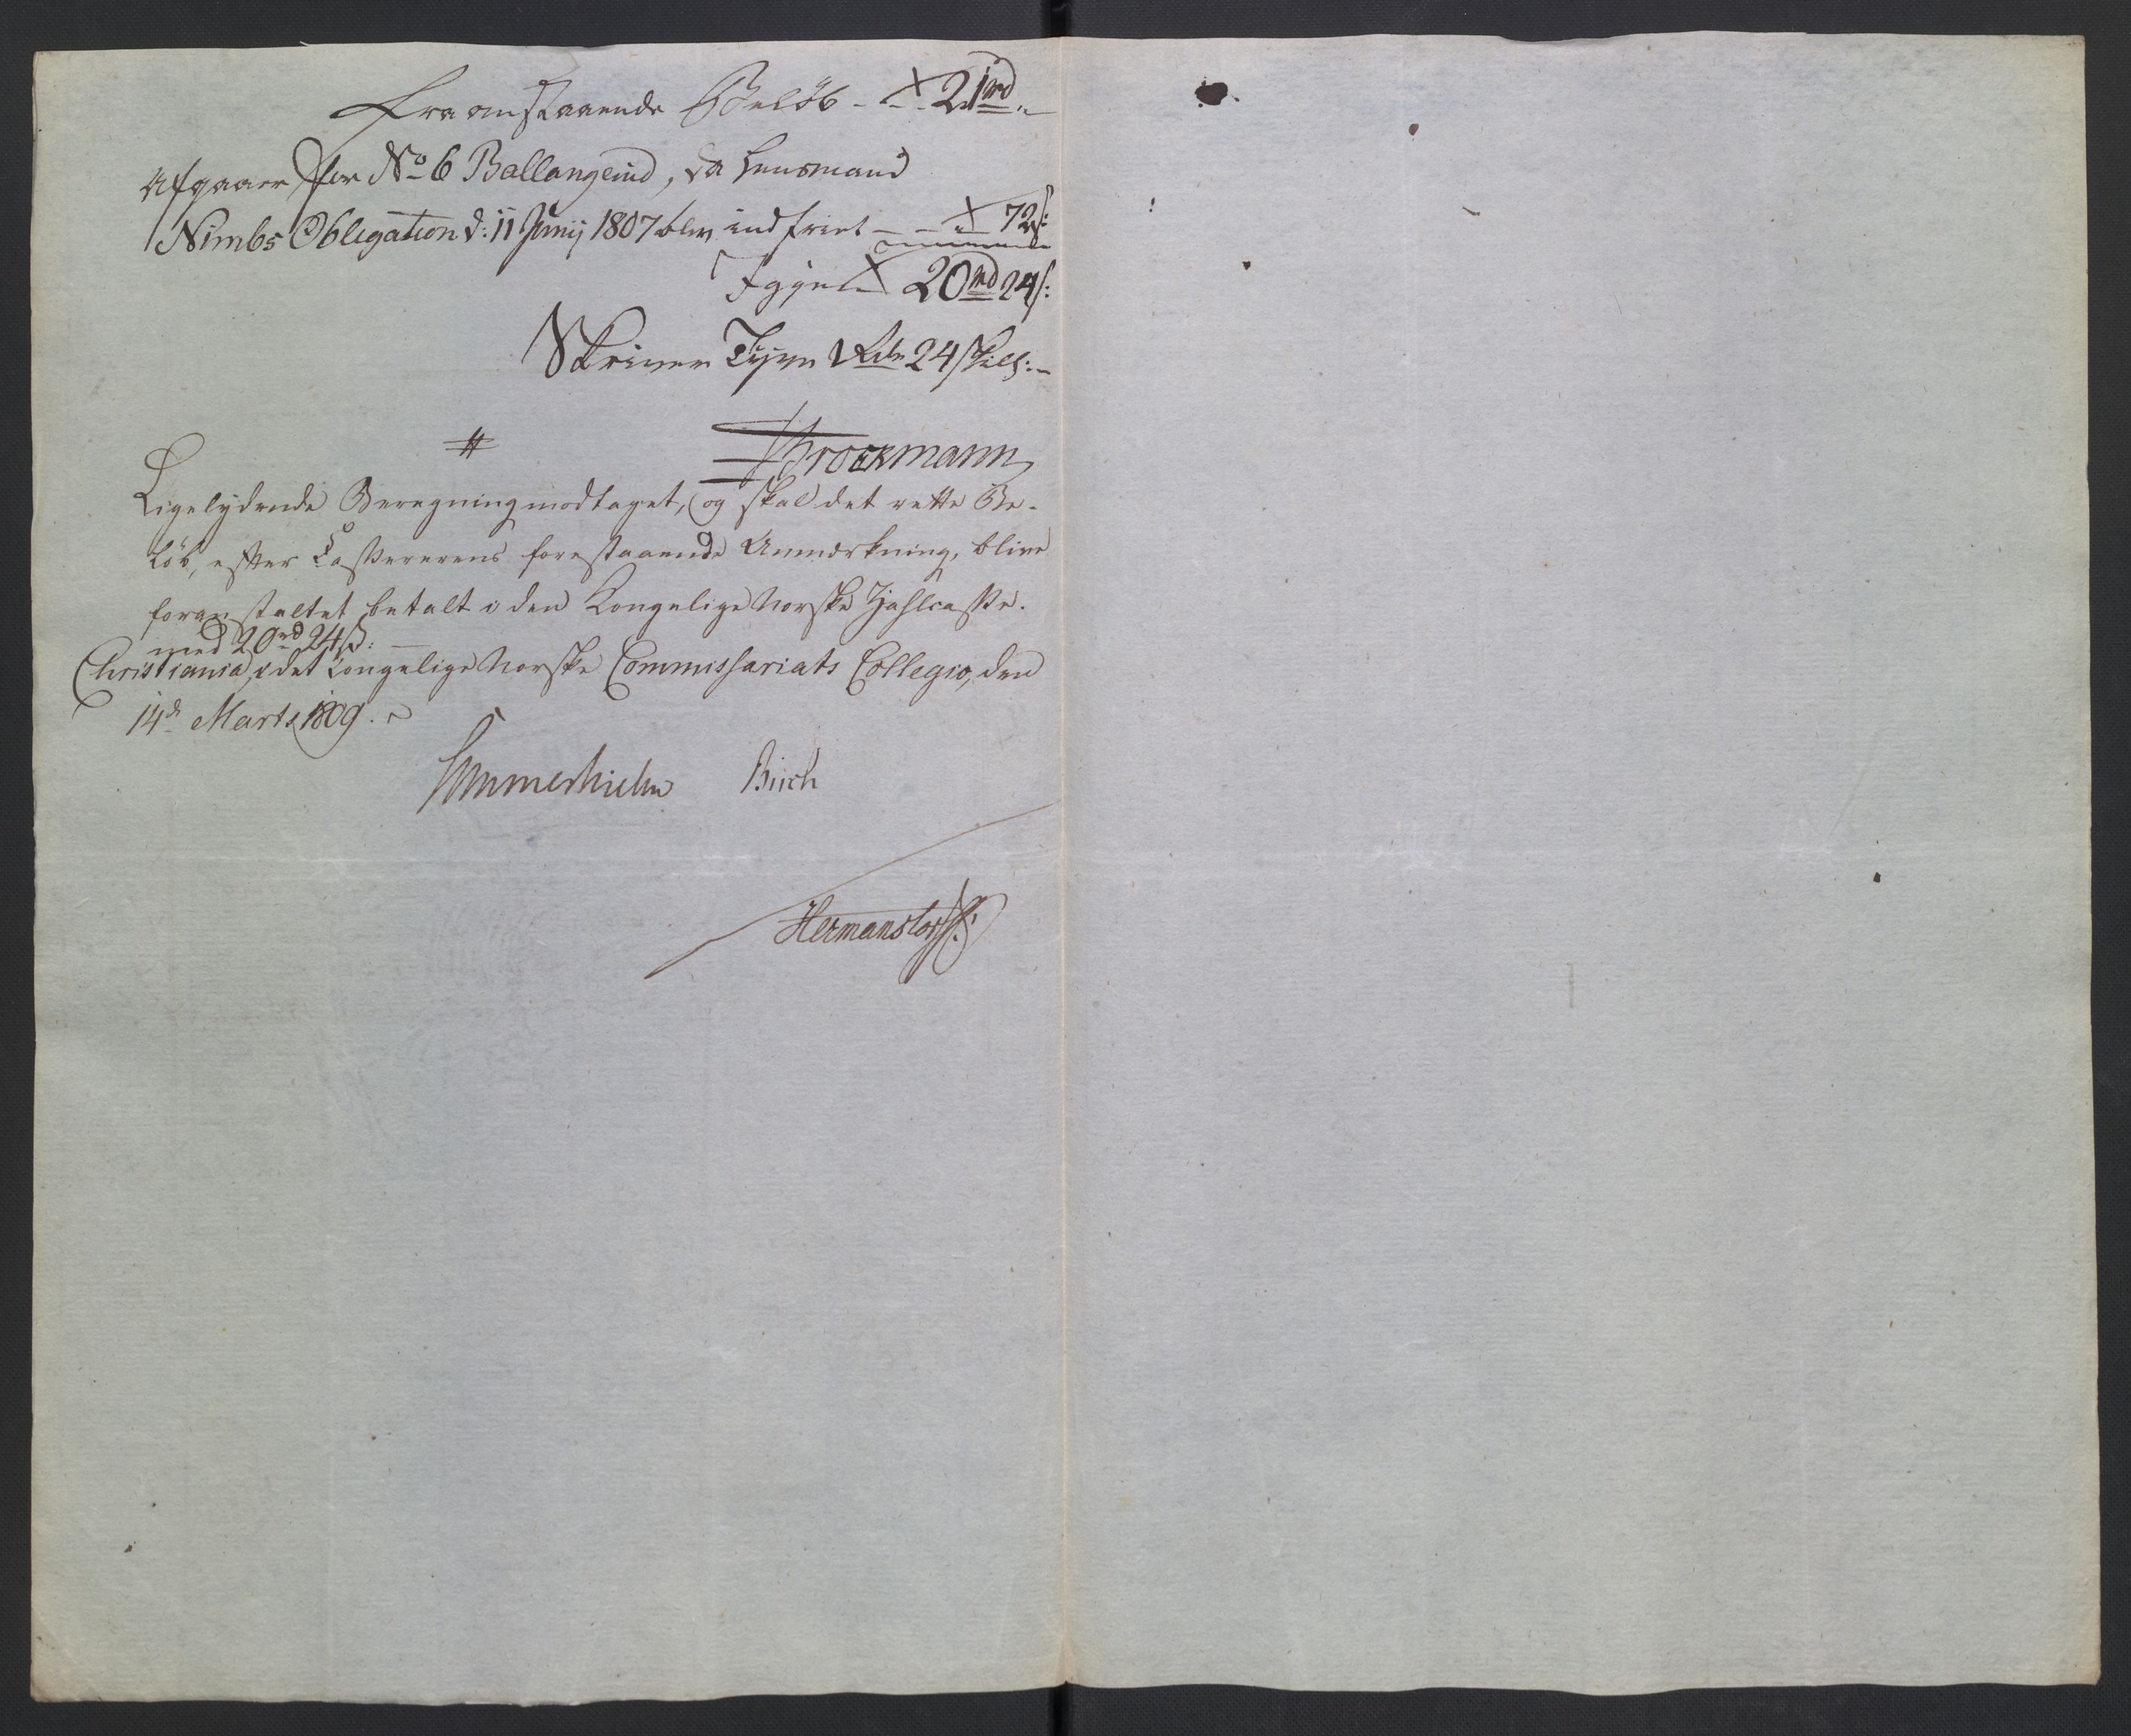 Fra omstaaende Beløb - - 21rd. -
Afgaaer for No 6 Ballangeiud, da Lensmand
Nimbs Obligation d: 11 Junij 1807 blev indfriet - - 72 s:
Igjen 20rd 24 s:
Skriver Tyve Rdr 24 skill:
Brockmann
Ligelydende Beregning modtaget, og skal det rette Be-
løb, efter Casserererens forestaaende Anmærkning, blive
foranstaltet betalt i den Kongelige Norske Zahlcasse.
med 20rd 24 s:
Christiania, i det Kongelige Norske Commissariats Collegio, den
14d Marts 1809.
Sommerhielm Birch
Hermanstorff: